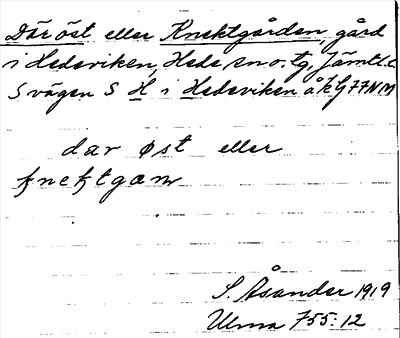 Där öst eller Knektgården, gård
i Hedeviken, Hede sn o. tg, Jämtl. l.
S vägen S H i Hedeviken åkG 77NM
dar øst eller
S. Åsander 1919
Ulma 755:12